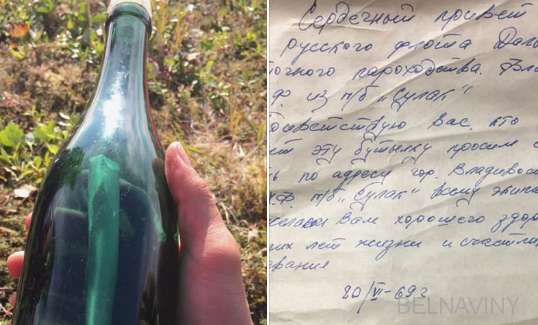 Сердечный привет
русского флота Дал
точного пароходства. Вл
Ф. из п/б „Сулак"
Приветствую Вас, кто
ет эту бутылку просим с
ь по адресу гор. Владивос
К.Ф. п/б „Сулак" всему экипа
желаем Вам хорошего здор
их лет жизни и счастли
вания
20/VI-69г
BELNAVINY